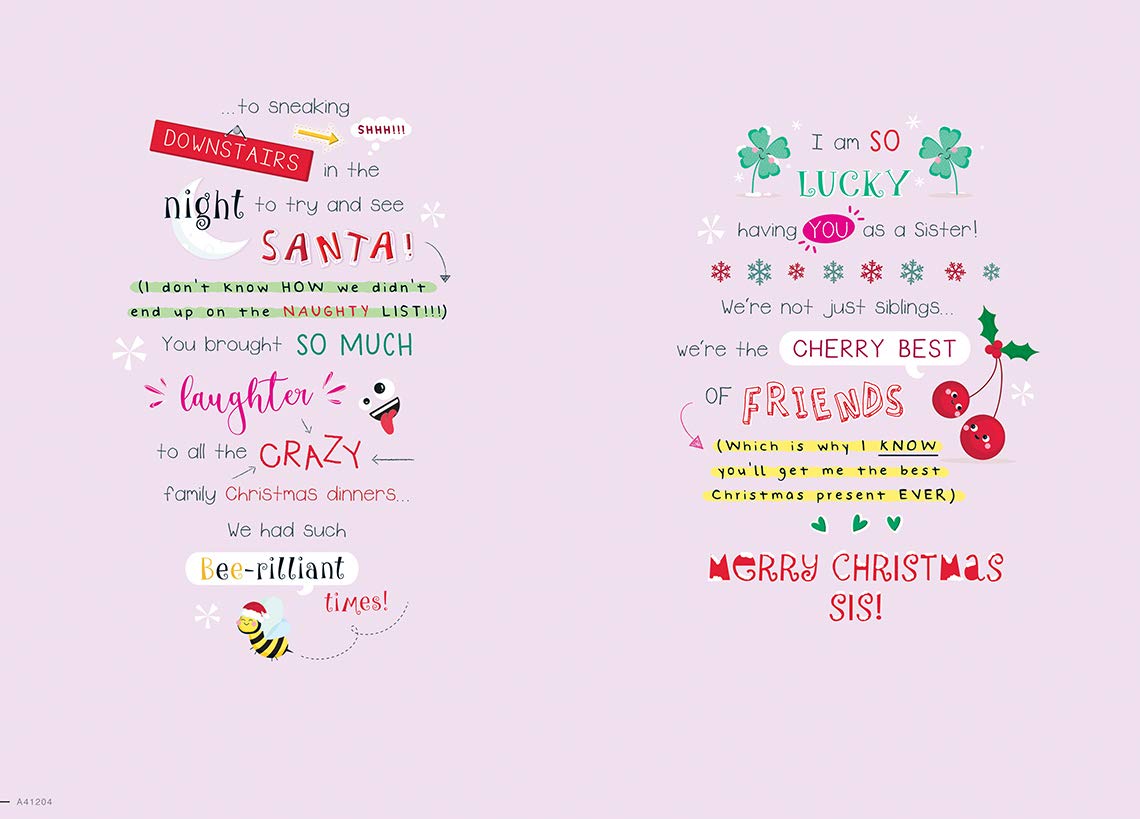 ...to sneaking
DOWNSTAIRS SHHH!!!
in the
night to try and see
SANTA!
(I don't know HOW we didn't
end up on the NAUGHTY LIST!!!)
You brought SO MUCH
laughter
to all the CRAZY
family Christmas dinners...
We had such
Bee-rilliant
times!
I am SO
LUCKY
having YOU as a Sister!
We're not just siblings...
we're the CHERRY BEST
OF FRIENDS
(Which is why I KNOW
you'll get me the best
Christmas present EVER)
MERRY CHRISTMAS
SIS!
A41204